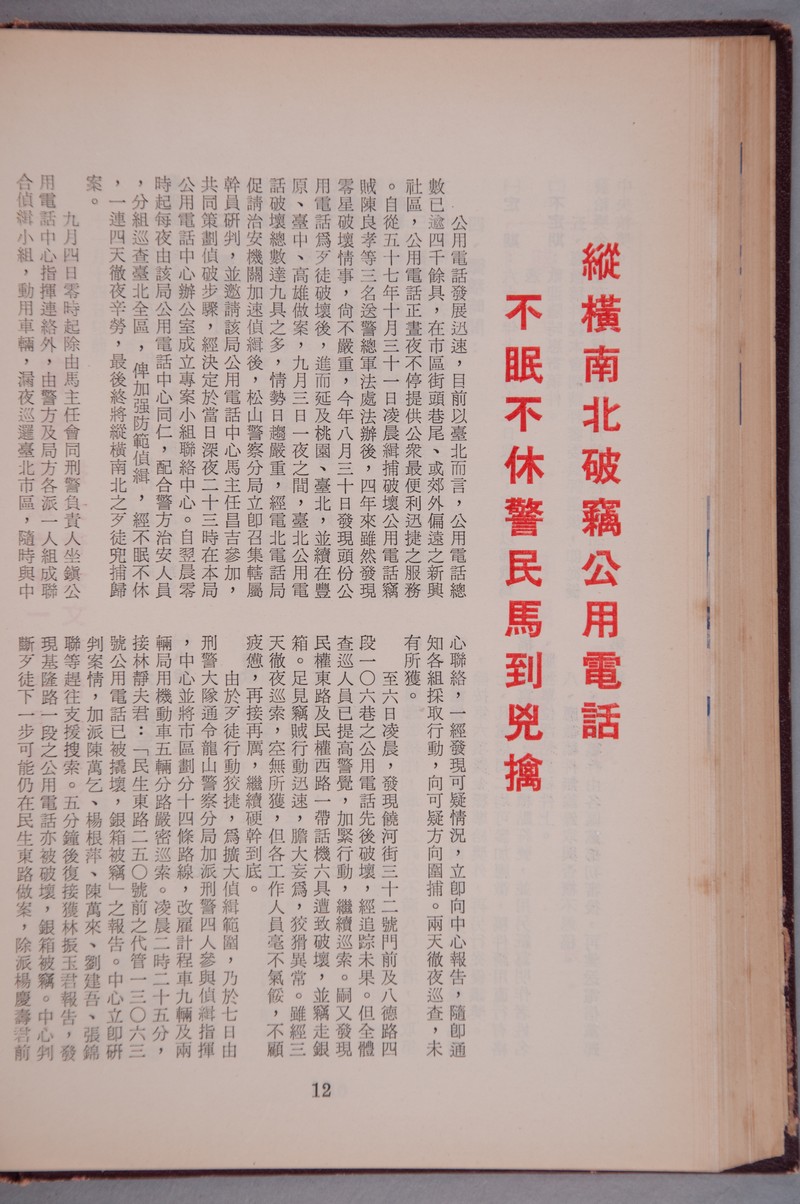 縱橫南北破竊公用電話
不眠不休警民馬到兇擒
公用電話發展迅速，目前以臺北而言，公用電話總
數已逾四千餘具，在市區街頭巷尾、或郊外偏遠之新興
社區，公用電話正晝夜不停提供公衆最便利迅捷之服務
。自從五十七年十月三十一日凌晨緝捕破壞公用電話竊
賊陳良孝等三名送警總軍法處法辦後，四年來雖然發現
零星破壞情事，尙不嚴重，今年八月三十日發現頭份公
用電話爲歹徒破壞後，進而延及桃園、臺北，並續在豐
原、臺中、高雄做案，九月三日一夜之間，臺北公用電
話破壞總數達九具之多，情勢日趨嚴重，經電北電話局
促請治安機關加速偵緝後，松山警察分局立卽召集轄屬
幹員硏判，並邀請該局公用電話中心馬主任昌吉參加，
共同策劃偵破步驟，經決定於當日深夜二十三時在本局
公用電話中心辦公室成立專案小組聯絡中心。自翌晨零
時起每夜由該局公用電話中心同仁，配合警方治安人員
，分組巡查臺北全區，俾加强防範偵緝，經不眠不休
，一連四天徹夜辛勞，最後終將縱橫南北之歹徒兜捕歸
案。
九月四日零時起除由馬主任會同刑警負責人坐鎭公
用電話中心指揮連絡外，由警方及局方各派一人組成聯
合偵緝小組，動用車輛，漏夜巡邏臺北市區，隨時與中
心聯絡，一經發現可疑情況，立卽向中心報告，隨卽通
知各組採取行動，向可疑方向圍捕。兩天徹夜巡查，未
有所獲。
至六日凌晨，發現饒河街三十二號門前及八德路四
段一〇六巷之公用電話先後破壞，經追踪未果。但全體
查巡人員已提高警覺，加緊行動，繼續巡索。嗣又發現
民權東路及民權西路一帶話機六具遭致破壞，並竊走銀
箱。足見竊賊行動迅速，膽大妄爲，狡猾異常。雖經三
天徹夜巡索，空無所獲，但各工作人員毫不氣餒，不顧
疲憊，再接再厲，繼續硬幹到底。
由於歹徒行動狡捷，爲擴大偵緝範圍，乃於七日由
刑警大隊通令龍山警察分局加派刑警四人參與偵緝指揮
，中心並將市區劃分十四條路線，改雇計程車九輛及兩
輛局用機動車五輛分路嚴密巡索。凌晨二時二十五分，
接林靜夫君：「民生東路二五〇號前之代管一三〇六三
號公用電話已被撬壞，銀箱被竊」之報告。中心立卽硏
判案情，加派陳萬乞、楊根萍、陳萬來、劉建吾、張錦
聯等趕往支援搜索。五分鐘後復接獲林振玉君報告，發
現基隆路一段之公用電話亦被破壞，銀箱被竊。中心判
斷歹徒下一步可能仍在民生東路做案，除派楊慶壽君前
12